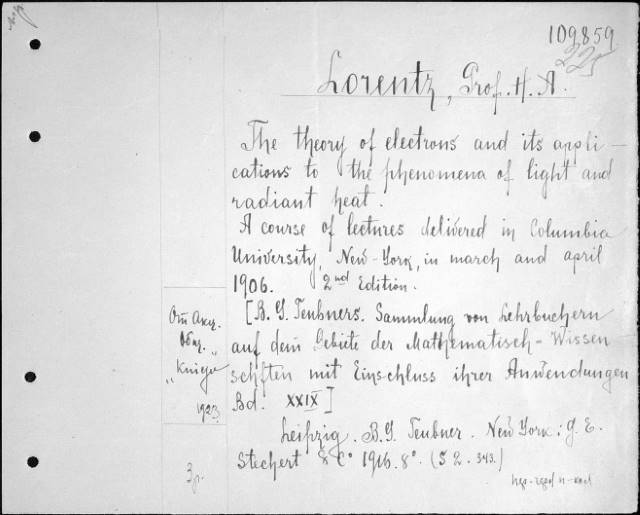 109859
225
Lorentz, Prof. H. A.
The theory of electrons and its appli-
cations to the phenomena of light and
radiant heat.
A course of lectures delivered in Columbia
University, New-York, in march and april
1906. 2nd Edition.
[B. G. Teubners. Sammlung von Lehrbuchern
auf dem Gebiete der Mathematisch-Wissen
schften mit Einschluss ihrer Anwendungen
Bd. XXIX]
Leipzig. B. G. Teubner. New York: G. E.
Stechert & Co 1916. 8°. (S 2. 343.)
От Акц.
Общ.
"Книга"
1923.
3р.